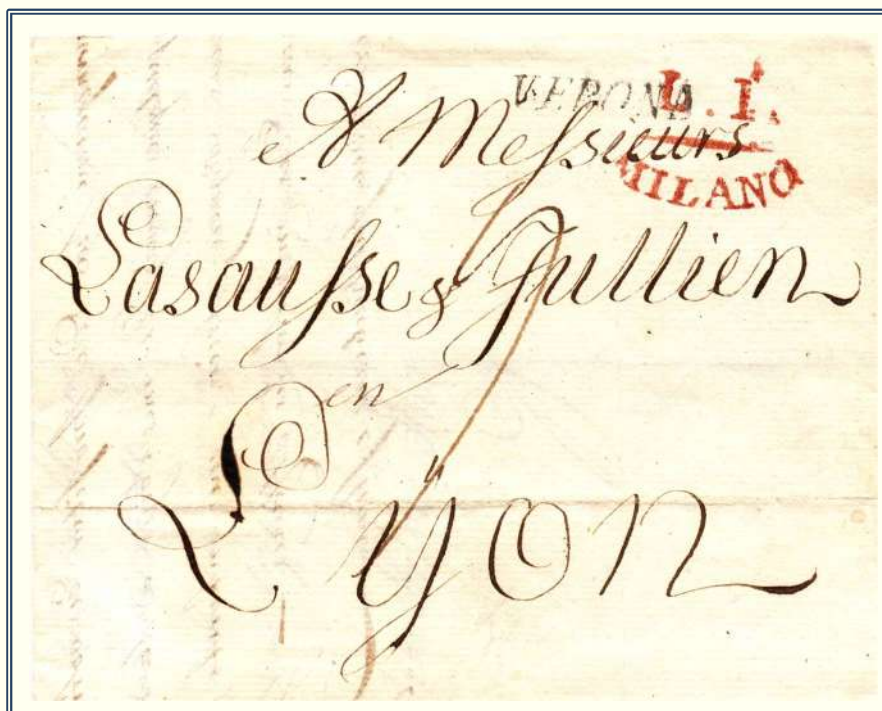 VERONA
L. I.
MILANO
A Messieurs
Lasausse & Jullien
en
Lyon